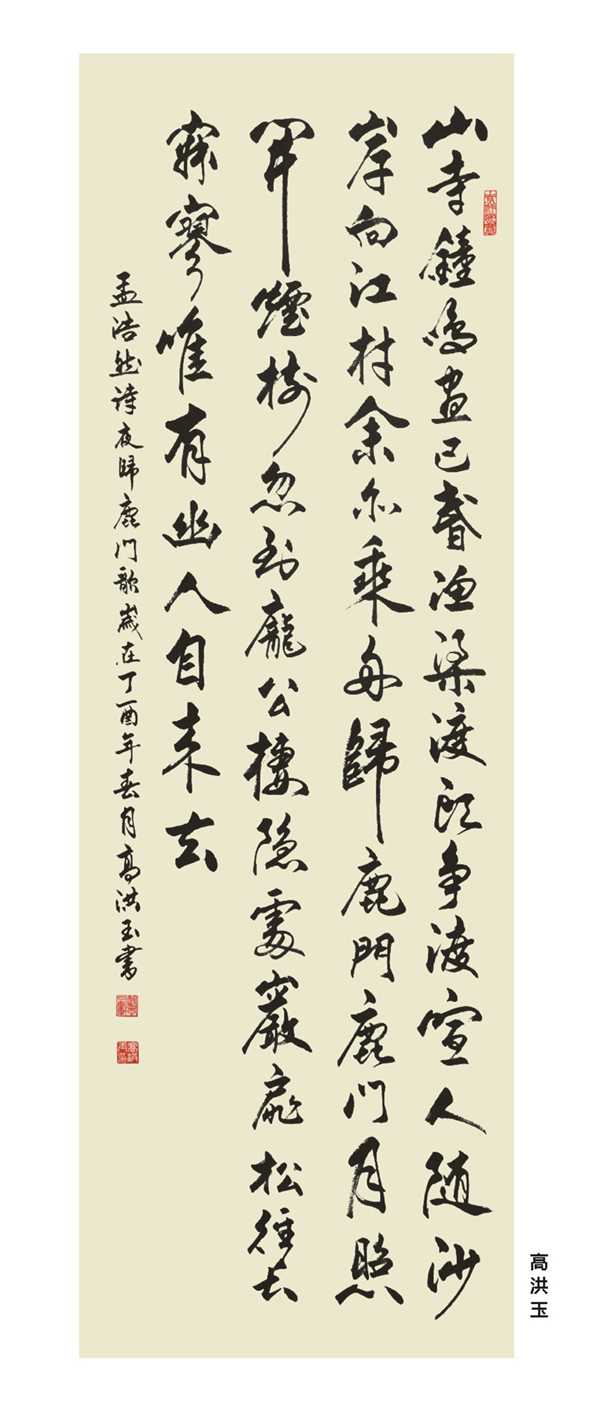 山寺鐘鳴晝已昏漁梁渡頭爭渡喧人隨沙
岸向江村余亦乘舟歸鹿門鹿門月照
開煙樹忽到龐公棲隱處巖扉松徑長
寂寥唯有幽人自來去
孟浩然詩夜歸鹿門歌歲在丁酉年春月高洪玉書
高洪玉